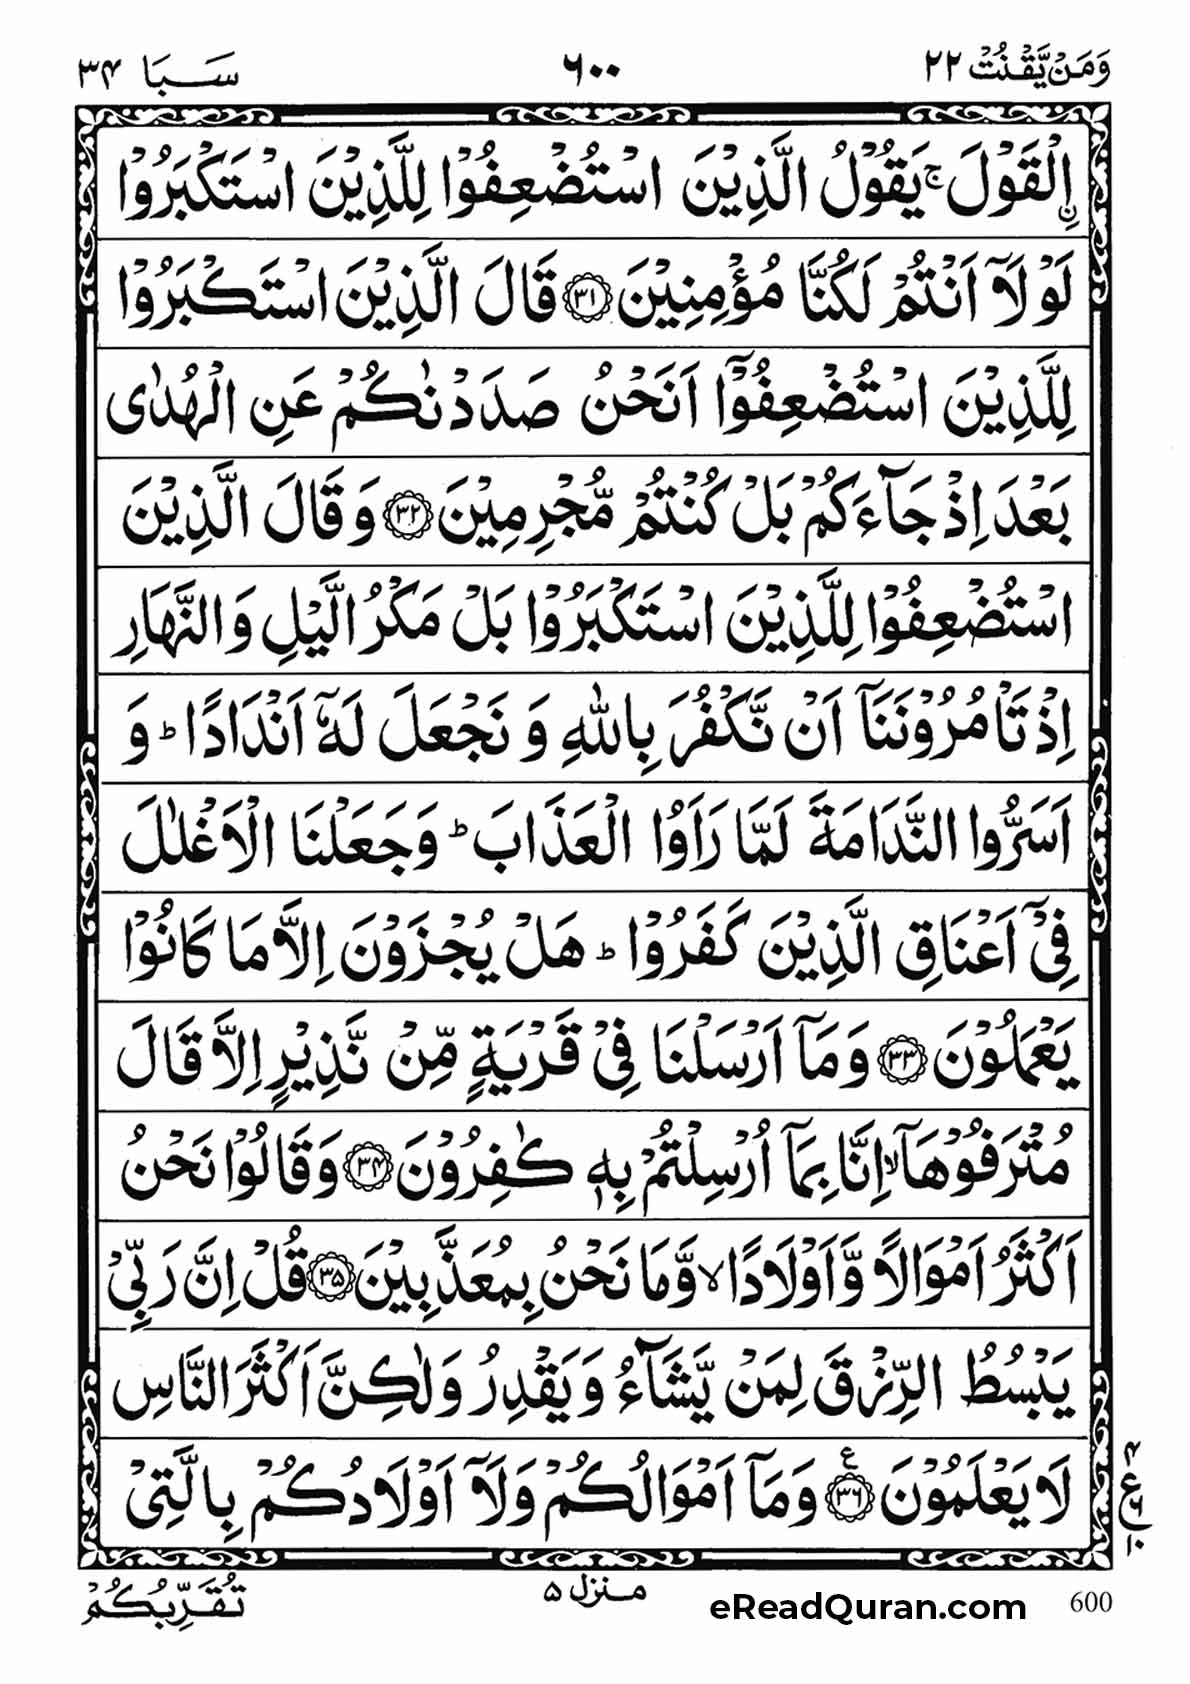 وَمَنْ يَّقْنُتْ ٢٢ ٦٠٠ سَـبَا ٣٤
اِۨلْقَوْلَ ۚ يَقُوْلُ الَّذِيْنَ اسْتُضْعِفُوْا لِلَّذِيْنَ اسْتَكْبَرُوْا
لَوْلَاۤ اَنْتُمْ لَكُنَّا مُؤْمِنِيْنَ ﴿٣١﴾ قَالَ الَّذِيْنَ اسْتَكْبَرُوْا
لِلَّذِيْنَ اسْتُضْعِفُوْۤا اَنَحْنُ صَدَدْنٰكُمْ عَنِ الْهُدٰى
بَعْدَ اِذْ جَآءَكُمْ بَلْ كُنْتُمْ مُّجْرِمِيْنَ ﴿٣٢﴾ وَقَالَ الَّذِيْنَ
اسْتُضْعِفُوْا لِلَّذِيْنَ اسْتَكْبَرُوْا بَلْ مَكْرُ الَّيْلِ وَالنَّهَارِ
اِذْ تَاْمُرُوْنَنَاۤ اَنْ نَّكْفُرَ بِاللّٰهِ وَنَجْعَلَ لَهٗۤ اَنْدَادًا ؕ وَ
اَسَرُّوا النَّدَامَةَ لَمَّا رَاَوُا الْعَذَابَ ؕ وَجَعَلْنَا الْاَغْلٰلَ
فِيْۤ اَعْنَاقِ الَّذِيْنَ كَفَرُوْا ؕ هَلْ يُجْزَوْنَ اِلَّا مَا كَانُوْا
يَعْمَلُوْنَ ﴿٣٣﴾ وَمَاۤ اَرْسَلْنَا فِيْ قَرْيَةٍ مِّنْ نَّذِيْرٍ اِلَّا قَالَ
مُتْرَفُوْهَاۤ ۙ اِنَّا بِمَاۤ اُرْسِلْتُمْ بِهٖ كٰفِرُوْنَ ﴿٣٤﴾ وَقَالُوْا نَحْنُ
اَكْثَرُ اَمْوَالًا وَّاَوْلَادًا ۙ وَّمَا نَحْنُ بِمُعَذَّبِيْنَ ﴿٣٥﴾ قُلْ اِنَّ رَبِّيْ
يَبْسُطُ الرِّزْقَ لِمَنْ يَّشَآءُ وَيَقْدِرُ وَلٰكِنَّ اَكْثَرَ النَّاسِ
لَا يَعْلَمُوْنَ ﴿٣٦﴾ ع وَمَاۤ اَمْوَالُكُمْ وَلَاۤ اَوْلَادُكُمْ بِالَّتِيْ
٤ ع ٦ ١٠
تُقَرِّبُكُمْ منزل ٥ eReadQuran.com 600